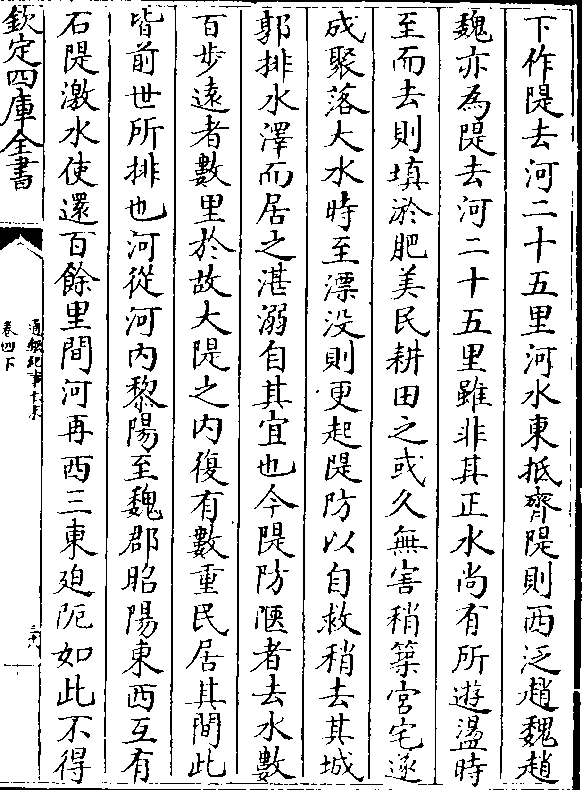 下作隄去河二十五里河水東抵齊隄則西泛趙魏趙
魏亦為隄去河二十五里雖非其正水尚有所遊盪時
至而去則填淤肥美民耕田之或久無害稍築宮宅遂
成聚落大水時至漂没則更起隄防以自救稍去其城
郭排水澤而居之湛溺自其宜也今隄防陿者去水數
百步遠者數里於故大隄之内復有數重民居其間此
皆前世所排也河從河内黎陽至魏郡昭陽東西互有
石隄激水使還百餘里間河再西三東廹阨如此不得
欽定四庫全書
通鑑紀事本末
卷四下